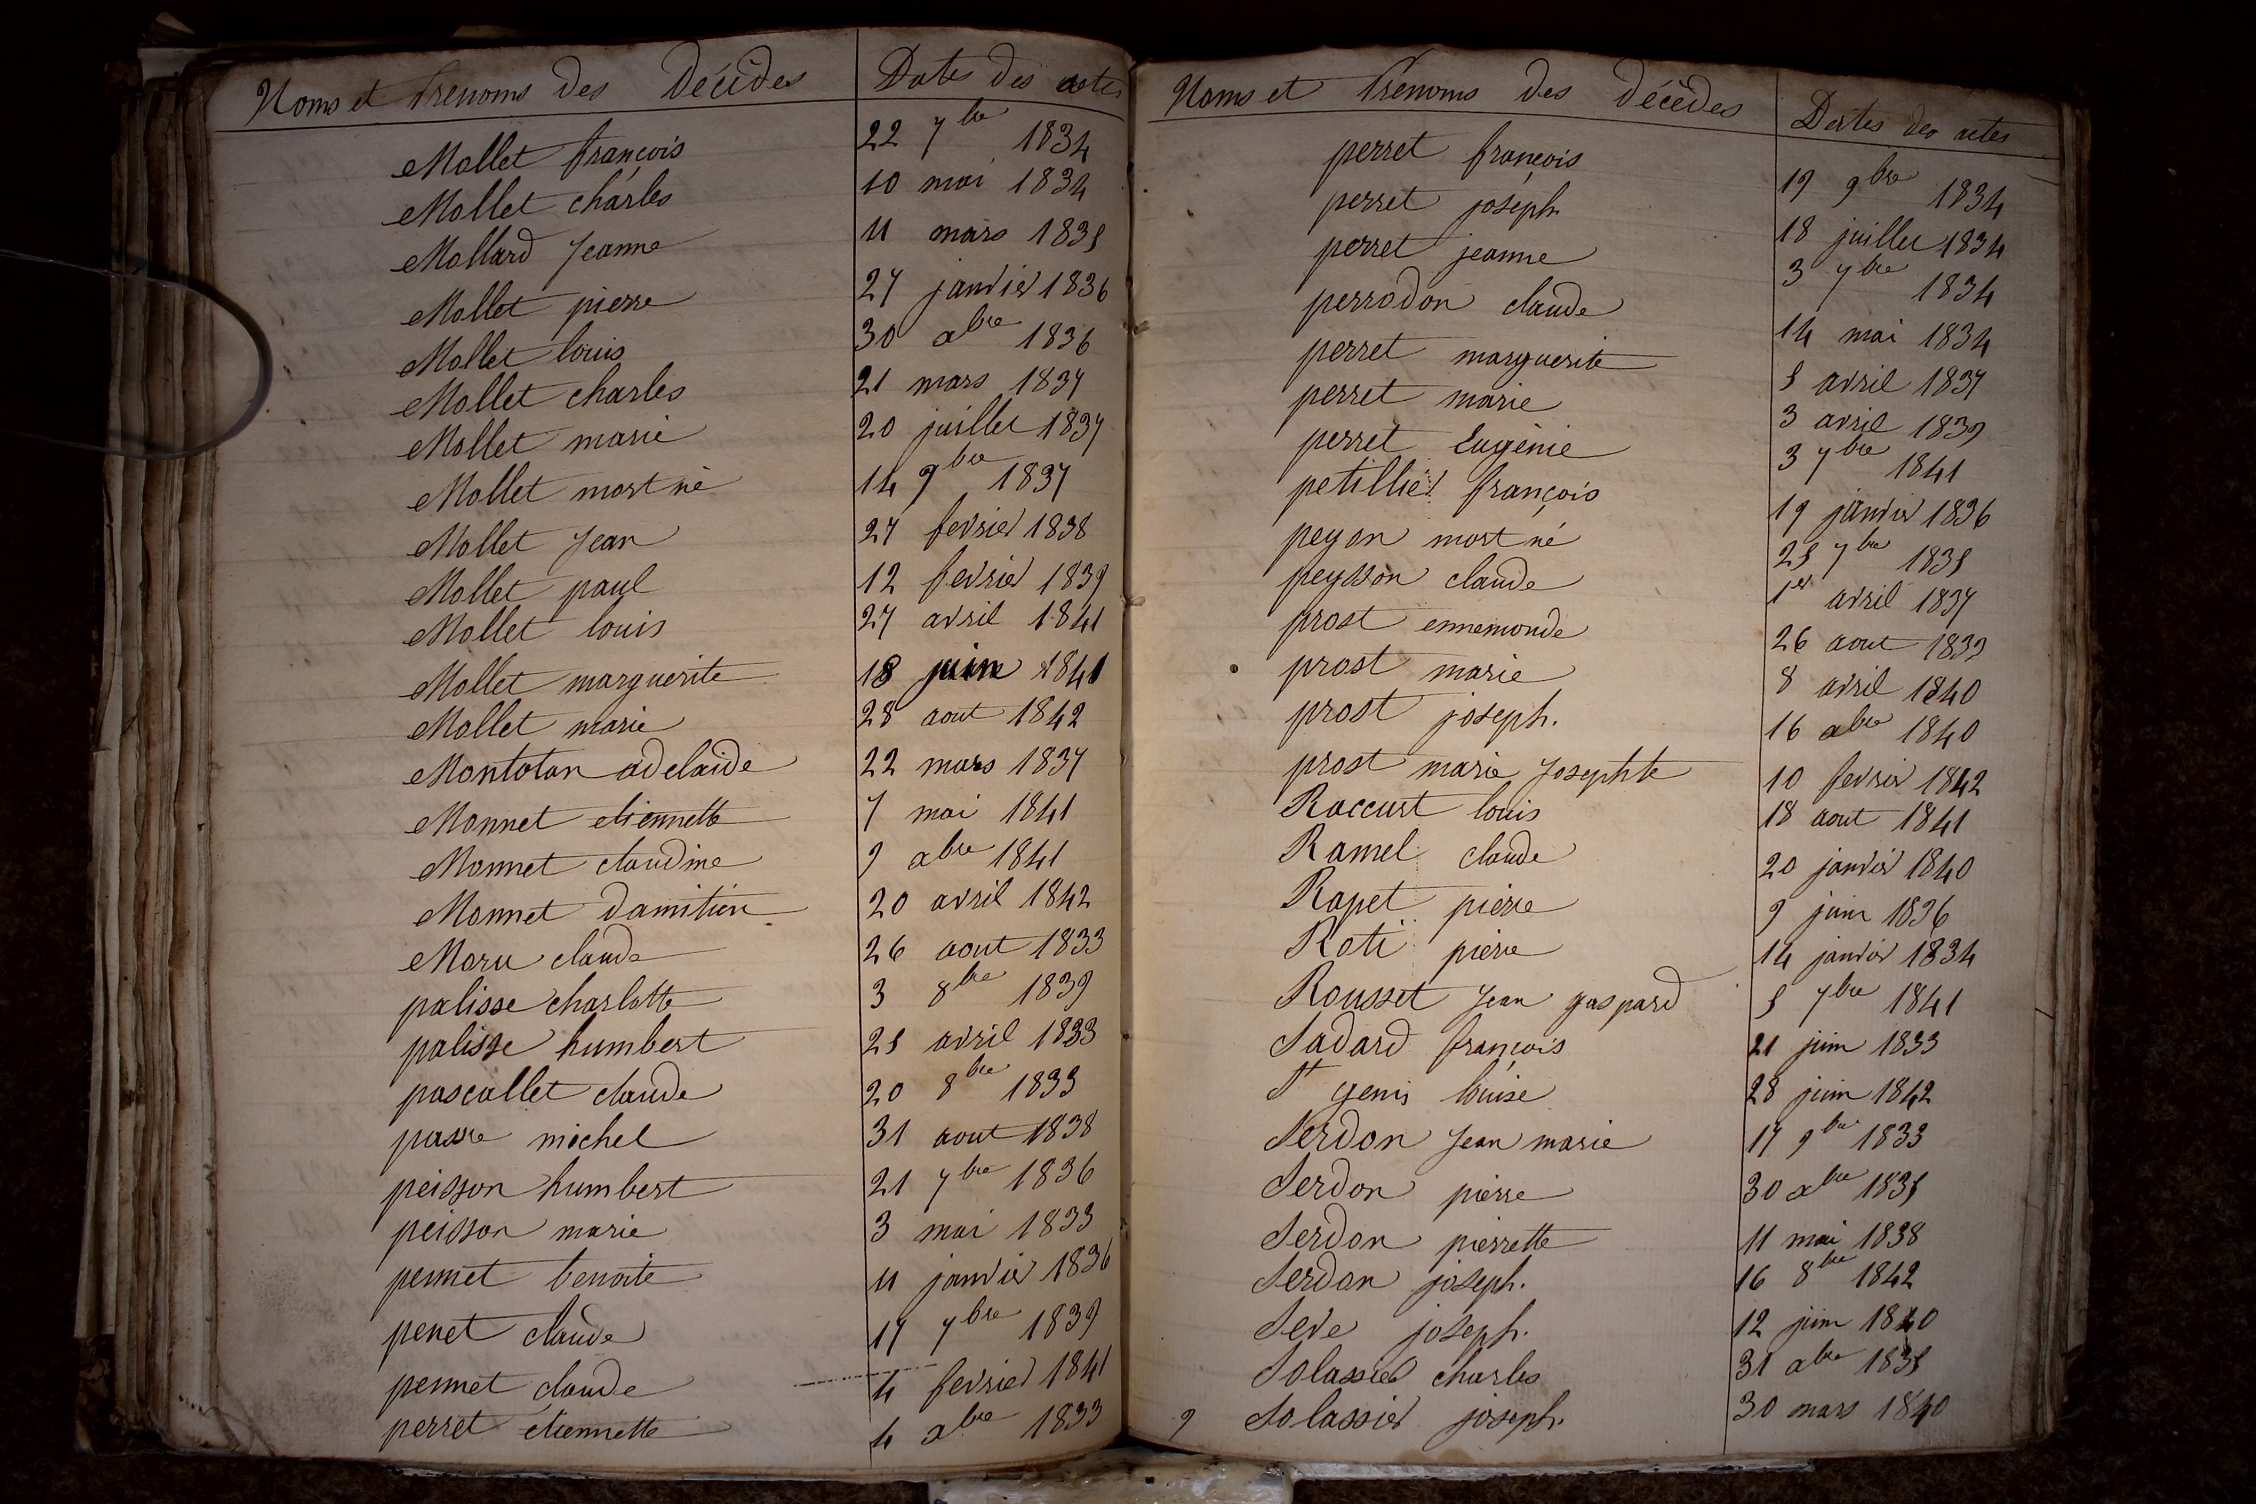 Noms et Prenoms des Décédés Date des actes
Mollet françois 22 7bre 1834
Mollet charles 10 mai 1834
Mollard Jeanne 11 mars 1835
Mollet pierre 27 janvier 1836
Mollet louis 30 xbre 1836
Mollet charles 21 mars 1837
Mollet marie 20 juillet 1837
Mollet mort né 14 9bre 1837
Mollet Jean 27 fevrier 1838
Mollet paul 12 fevrier 1839
Mollet louis 27 avril 1841
Mollet marguerite 18 juin 1841
Mollet marie 28 aout 1842
Montotan adelaide 22 mars 1837
Monnet etiennette 7 mai 1841
Monnet claudine 9 xbre 1841
Monnet damitien 20 avril 1842
Moru claude 26 aout 1833
palisse charlotte 3 8bre 1839
palisse humbert 25 avril 1833
pascallet claude 20 8bre 1833
passe michel 31 aout 1838
peisson humbert 21 7bre 1836
peisson marie 3 mai 1833
pennet benoite 11 janvier 1836
penet claude 17 7bre 1839
pennet claude 4 fevrier 1841
perret etiennette 4 xbre 1833
Noms et Prenoms des décédes Dates des actes
perret françois 19 9bre 1834
perret joseph 18 juillet 1834
perret jeanne 3 7bre 1834
perrodon claude 14 mai 1834
perret marguerite 5 avril 1837
perret marie 3 avril 1839
perret Eugènie 3 7bre 1841
petillier françois 19 janvier 1836
peyon mort né 25 7bre 1835
peysson claude 1er avril 1837
prost ennemonde 26 aout 1839
prost marie 8 avril 1840
prost joseph. 16 xbre 1840
prost marie Josephte 10 fevrier 1842
Raccurt louis 18 aout 1841
Ramel claude 20 janvier 1840
Rapet pierre 9 juin 1836
Roti pierre 14 janvier 1834
Rousset Jean gaspard 5 7bre 1841
Sadard françois 21 juin 1833
St genis louise 28 juin 1842
Serdon Jean marie 17 9bre 1833
Serdon pierre 30 xbre 1835
Serdon pierrette 11 mai 1838
Serdon joseph. 16 8bre 1842
Seve joseph. 12 juin 1840
Solassier charles 31 xbre 1835
9 Solassier joseph. 30 mars 1840